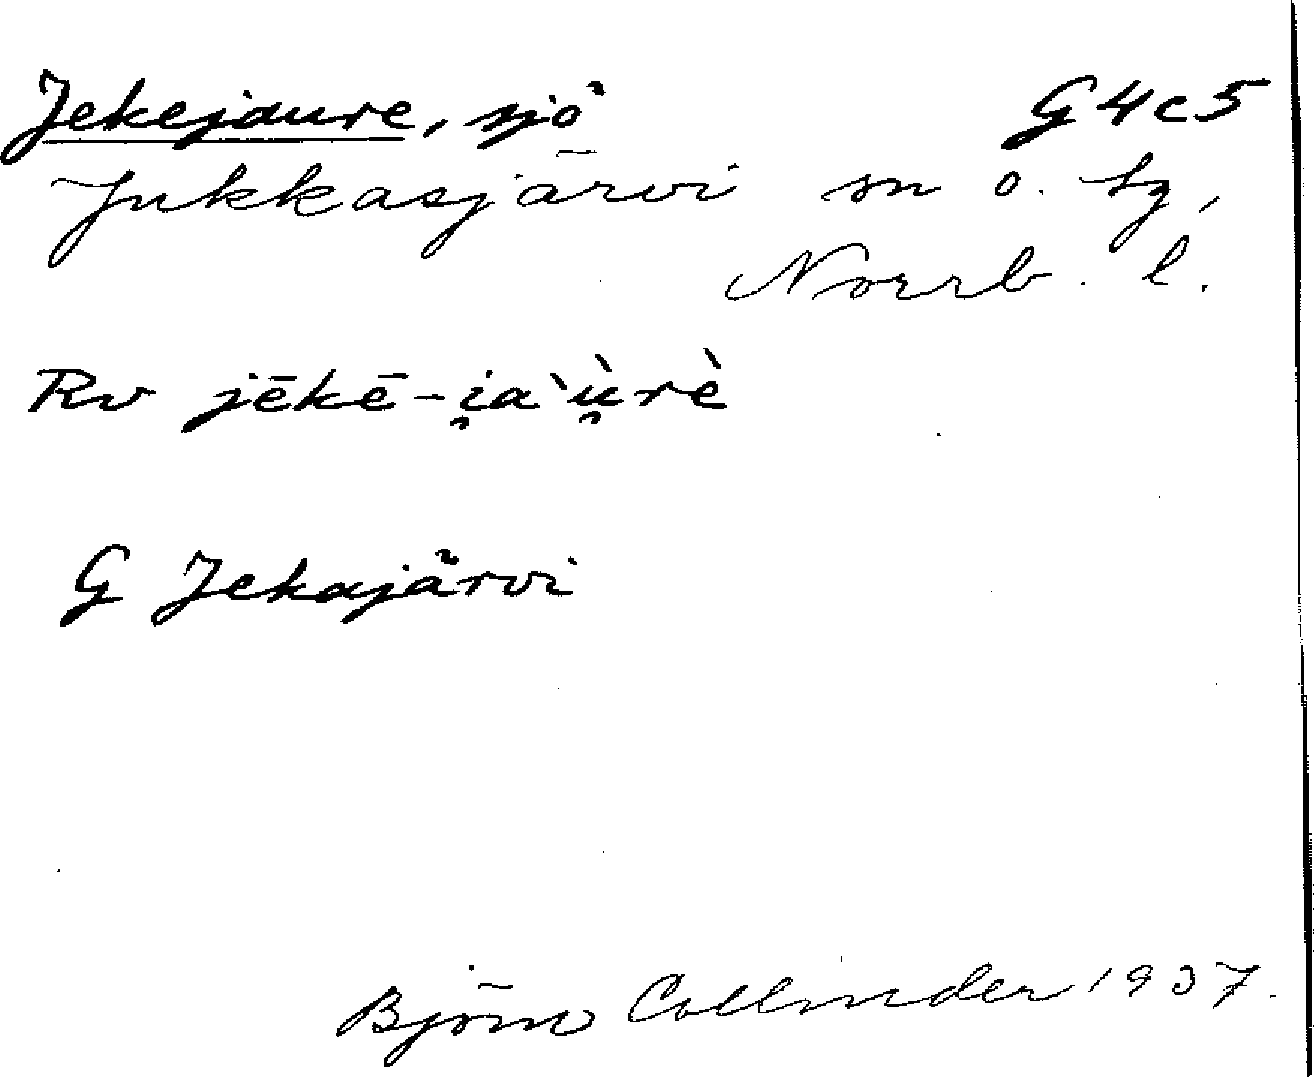 Jekejaure, sjö G4c5
Jukkasjärvi sn o. tg,
Norrb. l.
Rv jēkē-i̯aˋù̯rè
G Jekajärvi
Björn Collinder 1937.